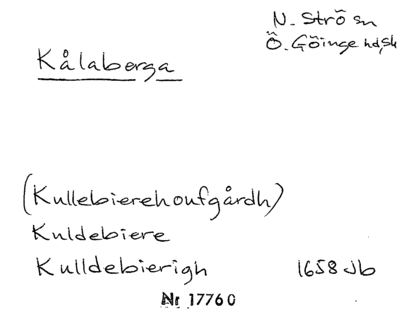 N. Strö sn
Ö. Göinge hd, Sk
Kålaberga
(Kullebierehoufgårdh)
Kuldebiere
Kulldebierigh 1658 Jb
Nr 17760